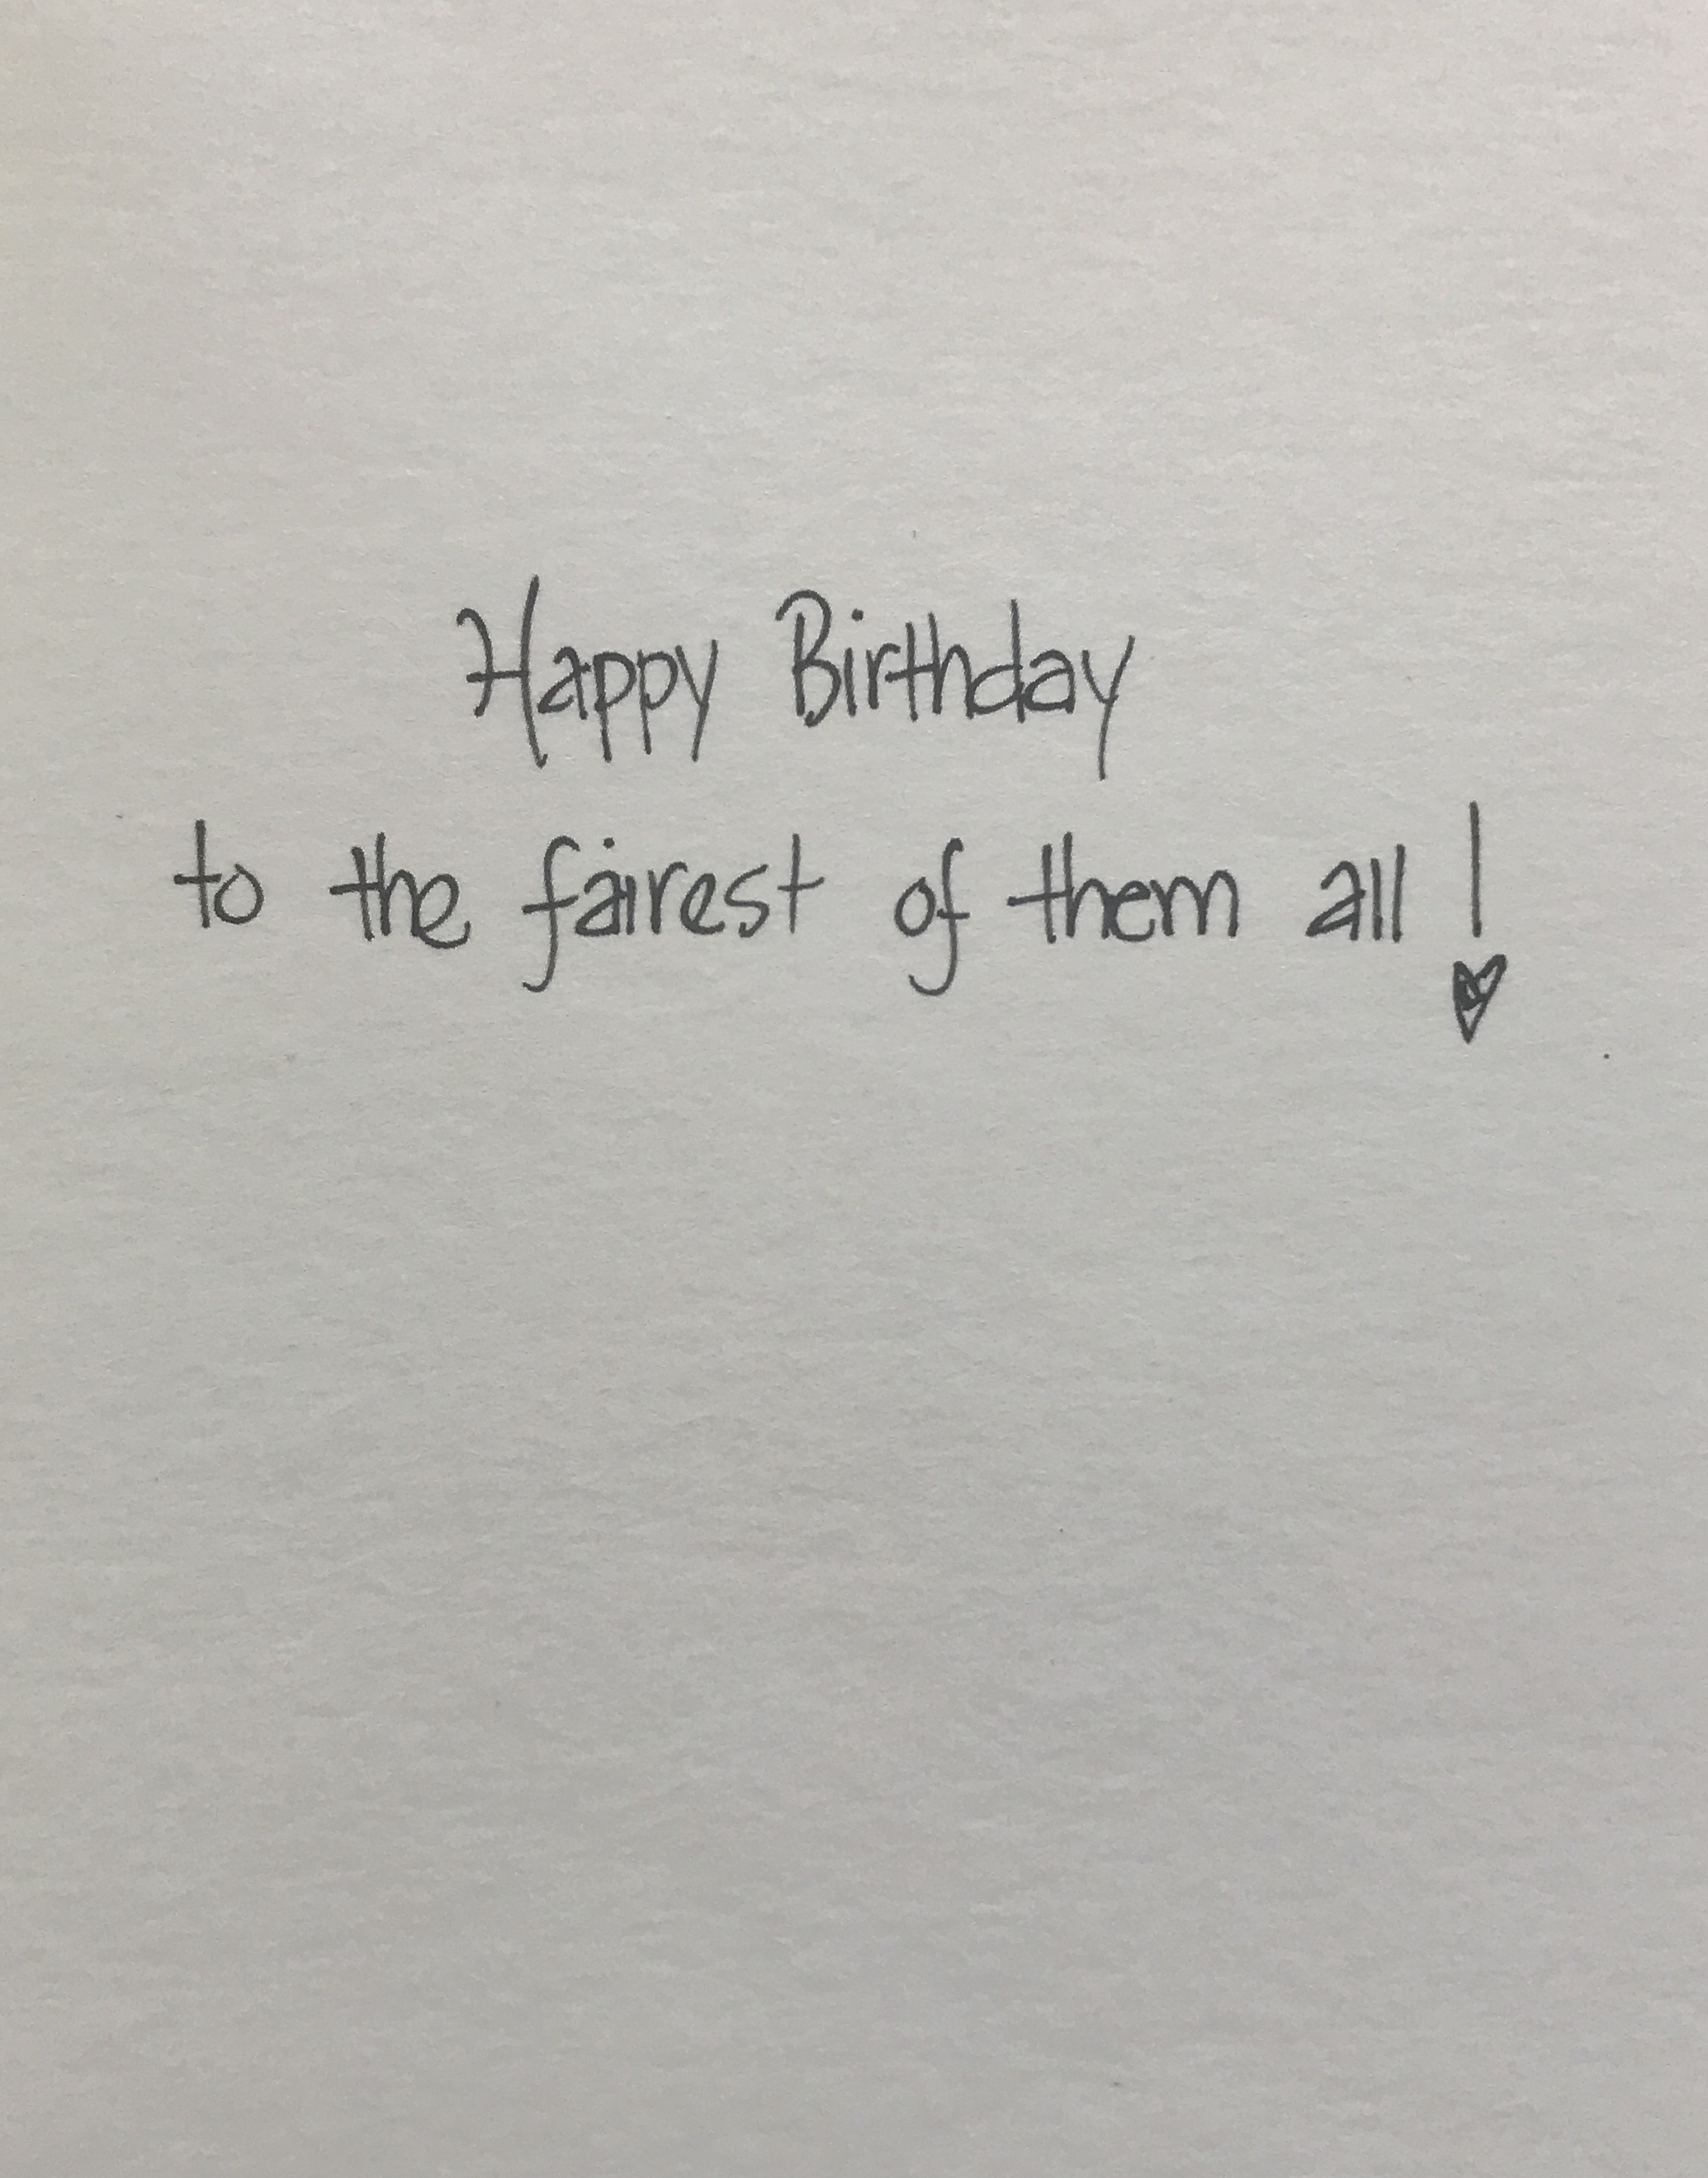 Happy Birthday
to the fairest of them all!